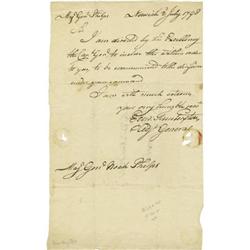 Maj Genl Phelps Norwich 2 July 1798
Sir
I am directed by his Excellency
the Cap Genl to inclose the within order
to you to be communicated to the division
under your command
I am with much esteem
your very humble servt
Adjt General
Maj Genl Noah Phelps